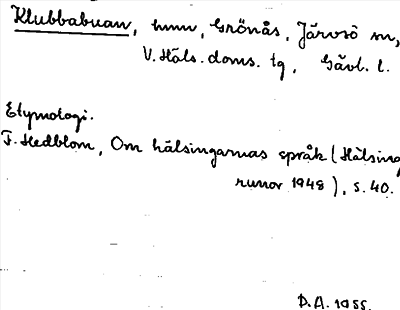 Klubbabuan, hmn, Grönås, Järvsö sn,
V. Häls. doms. tg, Gävl. l.
Etymologi.
F. Hedblom, Om hälsingarnas språk (Hälsing
runor 1948), s. 40.
D.A. 1955.